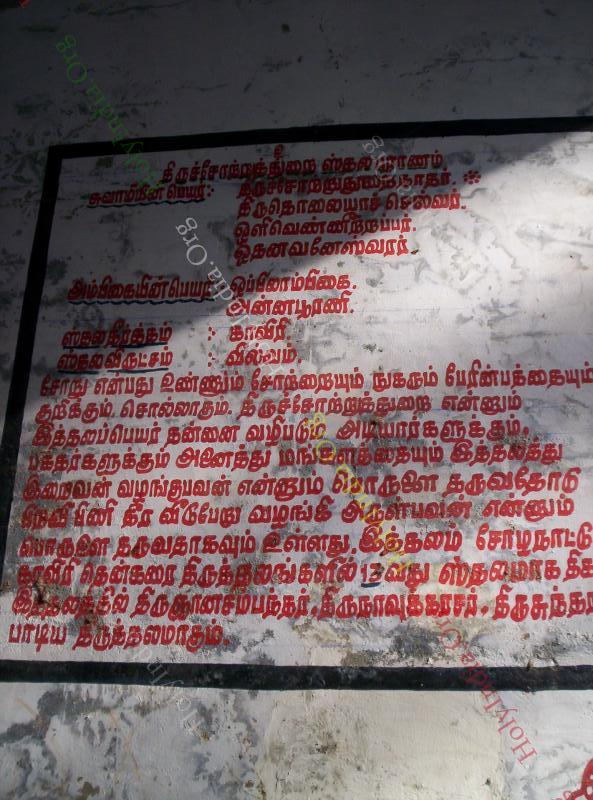 திருச்சோற்றுத்துறை ஸ்தலபுராணம்
சுவாமியின் பெயர்:- திருச்சோற்றுத்துறைநாதர்.
திருதொலையாச் செல்வர்.
ஒளிவெண்ணீற்றப்பர்.
ஓதனவனேஸ்வரர்.
அம்பிகையின்பெயர்:- ஒப்பிலாம்பிகை.
அன்னபூரணி.
ஸ்தலதீர்த்தம் : காவிரி
ஸ்தலவிருட்சம் : வில்வம்.
சோறு என்பது உண்ணும் சோற்றையும் நுகரும் பேரின்பத்தையும்
குறிக்கும் சொல்லாகும். திருச்சோற்றுத்துறை என்னும்
இத்தலப்பெயர் தன்னை வழிபடும் அடியார்களுக்கும்,
பக்தர்களுக்கும் அனைத்து மங்களத்தையும் இத்தலத்து
இறைவன் வழங்குபவன் என்னும் பொருளை தருவதோடு
பிறவிபிணி தீர வீடுபேறு வழங்கி அருள்பவன் என்னும்
பொருளை தருவதாகவும் உள்ளது. இத்தலம் சோழநாட்டு
காவிரி தென்கரை திருத்தலங்களில் 13வது ஸ்தலமாக திக
இத்தலத்தில் திருஞானசம்பந்தர், திருநாவுக்கரசர், திருசுந்தர
பாடிய திருத்தலமாகும்.
HolyIndia.Org
HolyIndia.Org
HolyIndia.Org